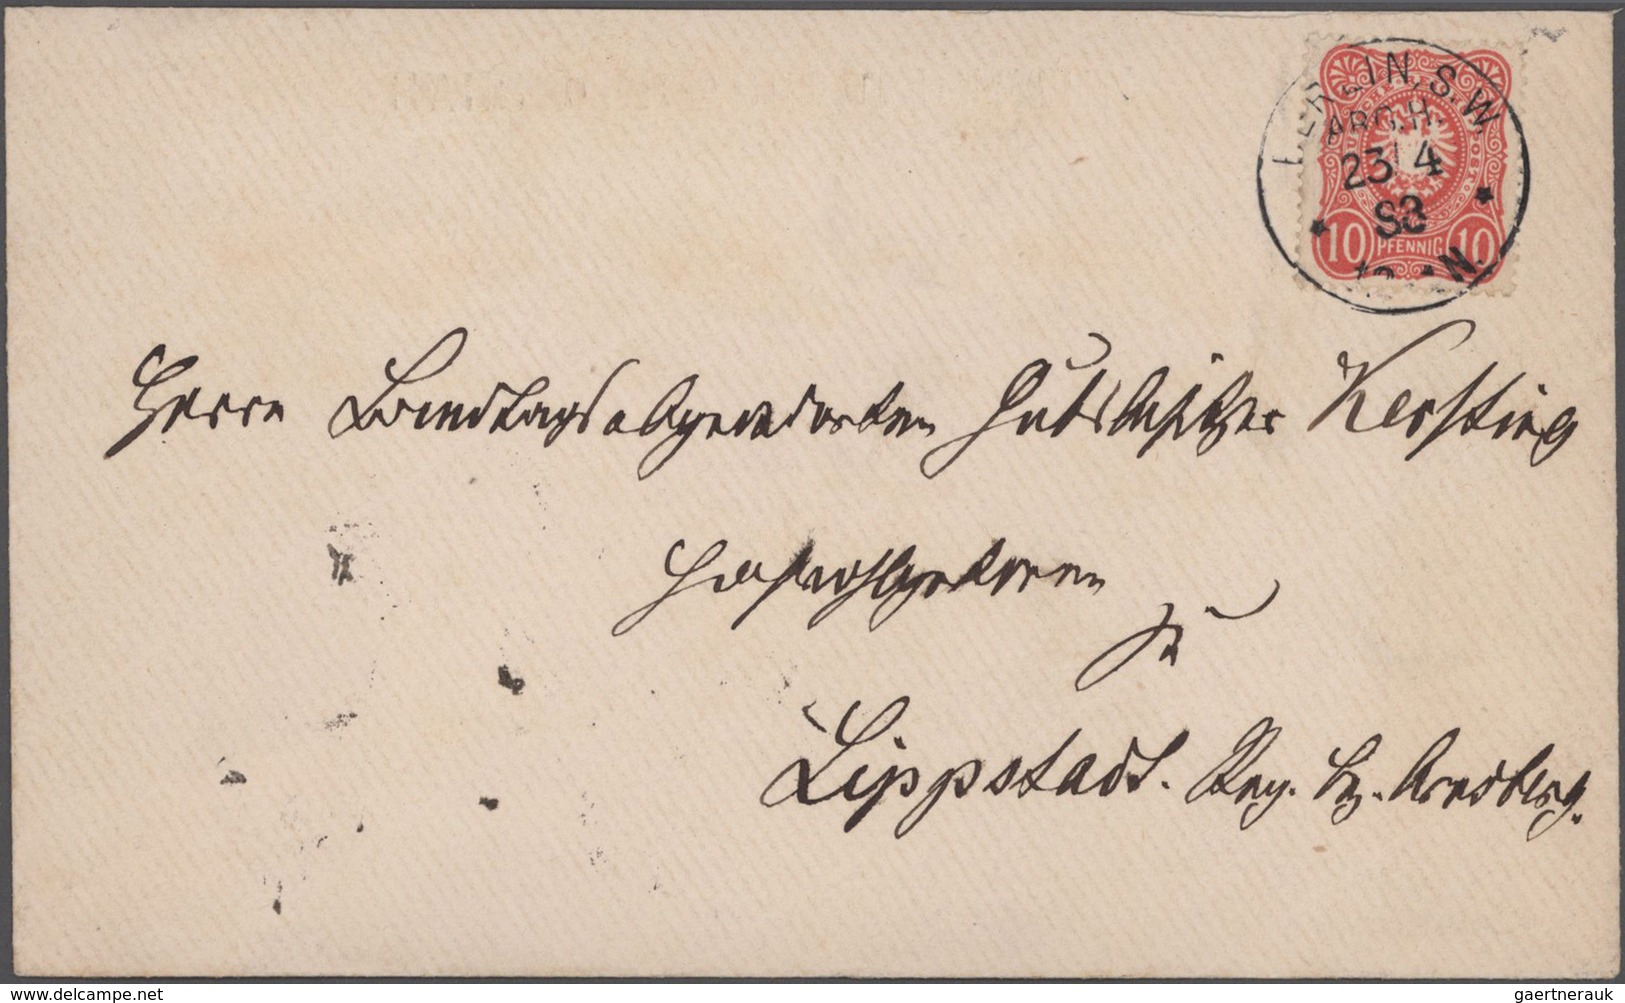 BERLIN, S.W.
ABG.H.
23 4
83
10 PFENNIG 10
N.
Herrn Landtagsabgeordneten Gutsbesitzer Kersting
Hochwohlgeboren
zu
Lippstadt. Reg. Bz. Arnsberg.
www.delcampe.net
gaertnerauk